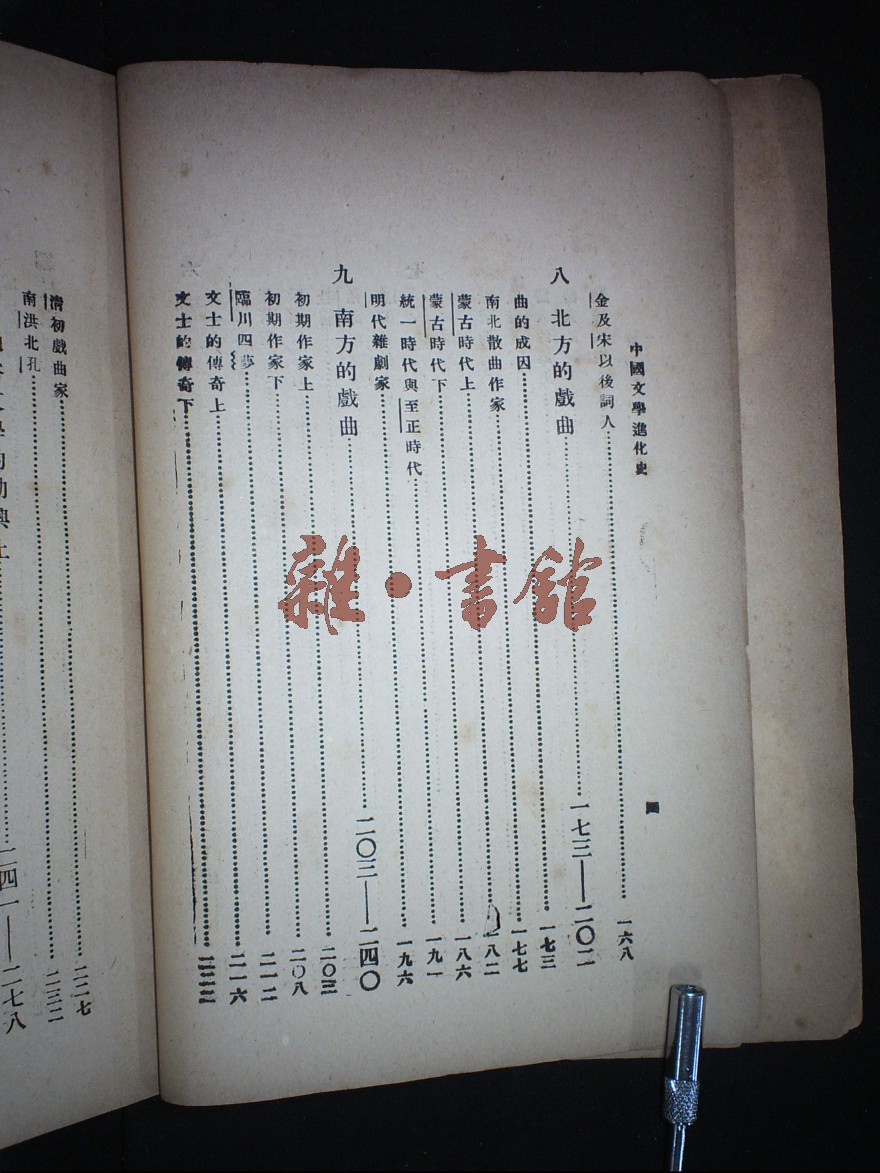 中國文學進化史
四
金及宋以後詞人 一六八
八 北方的戲曲 一七三——二〇二
曲的成因 一七三
南北散曲作家 一七七
蒙古時代上 一八二
蒙古時代下 一八六
統一時代與至正時代 一九一
明代雜劇家 一九六
九 南方的戲曲 二〇三——二四〇
初期作家上 二〇三
初期作家下 二〇八
臨川四夢 二一二
文士的傳奇上 二一六
文士的傳奇下 二二二
清初戲曲家 二二七
南洪北孔 二三二
二四一——二七八
雜·書館